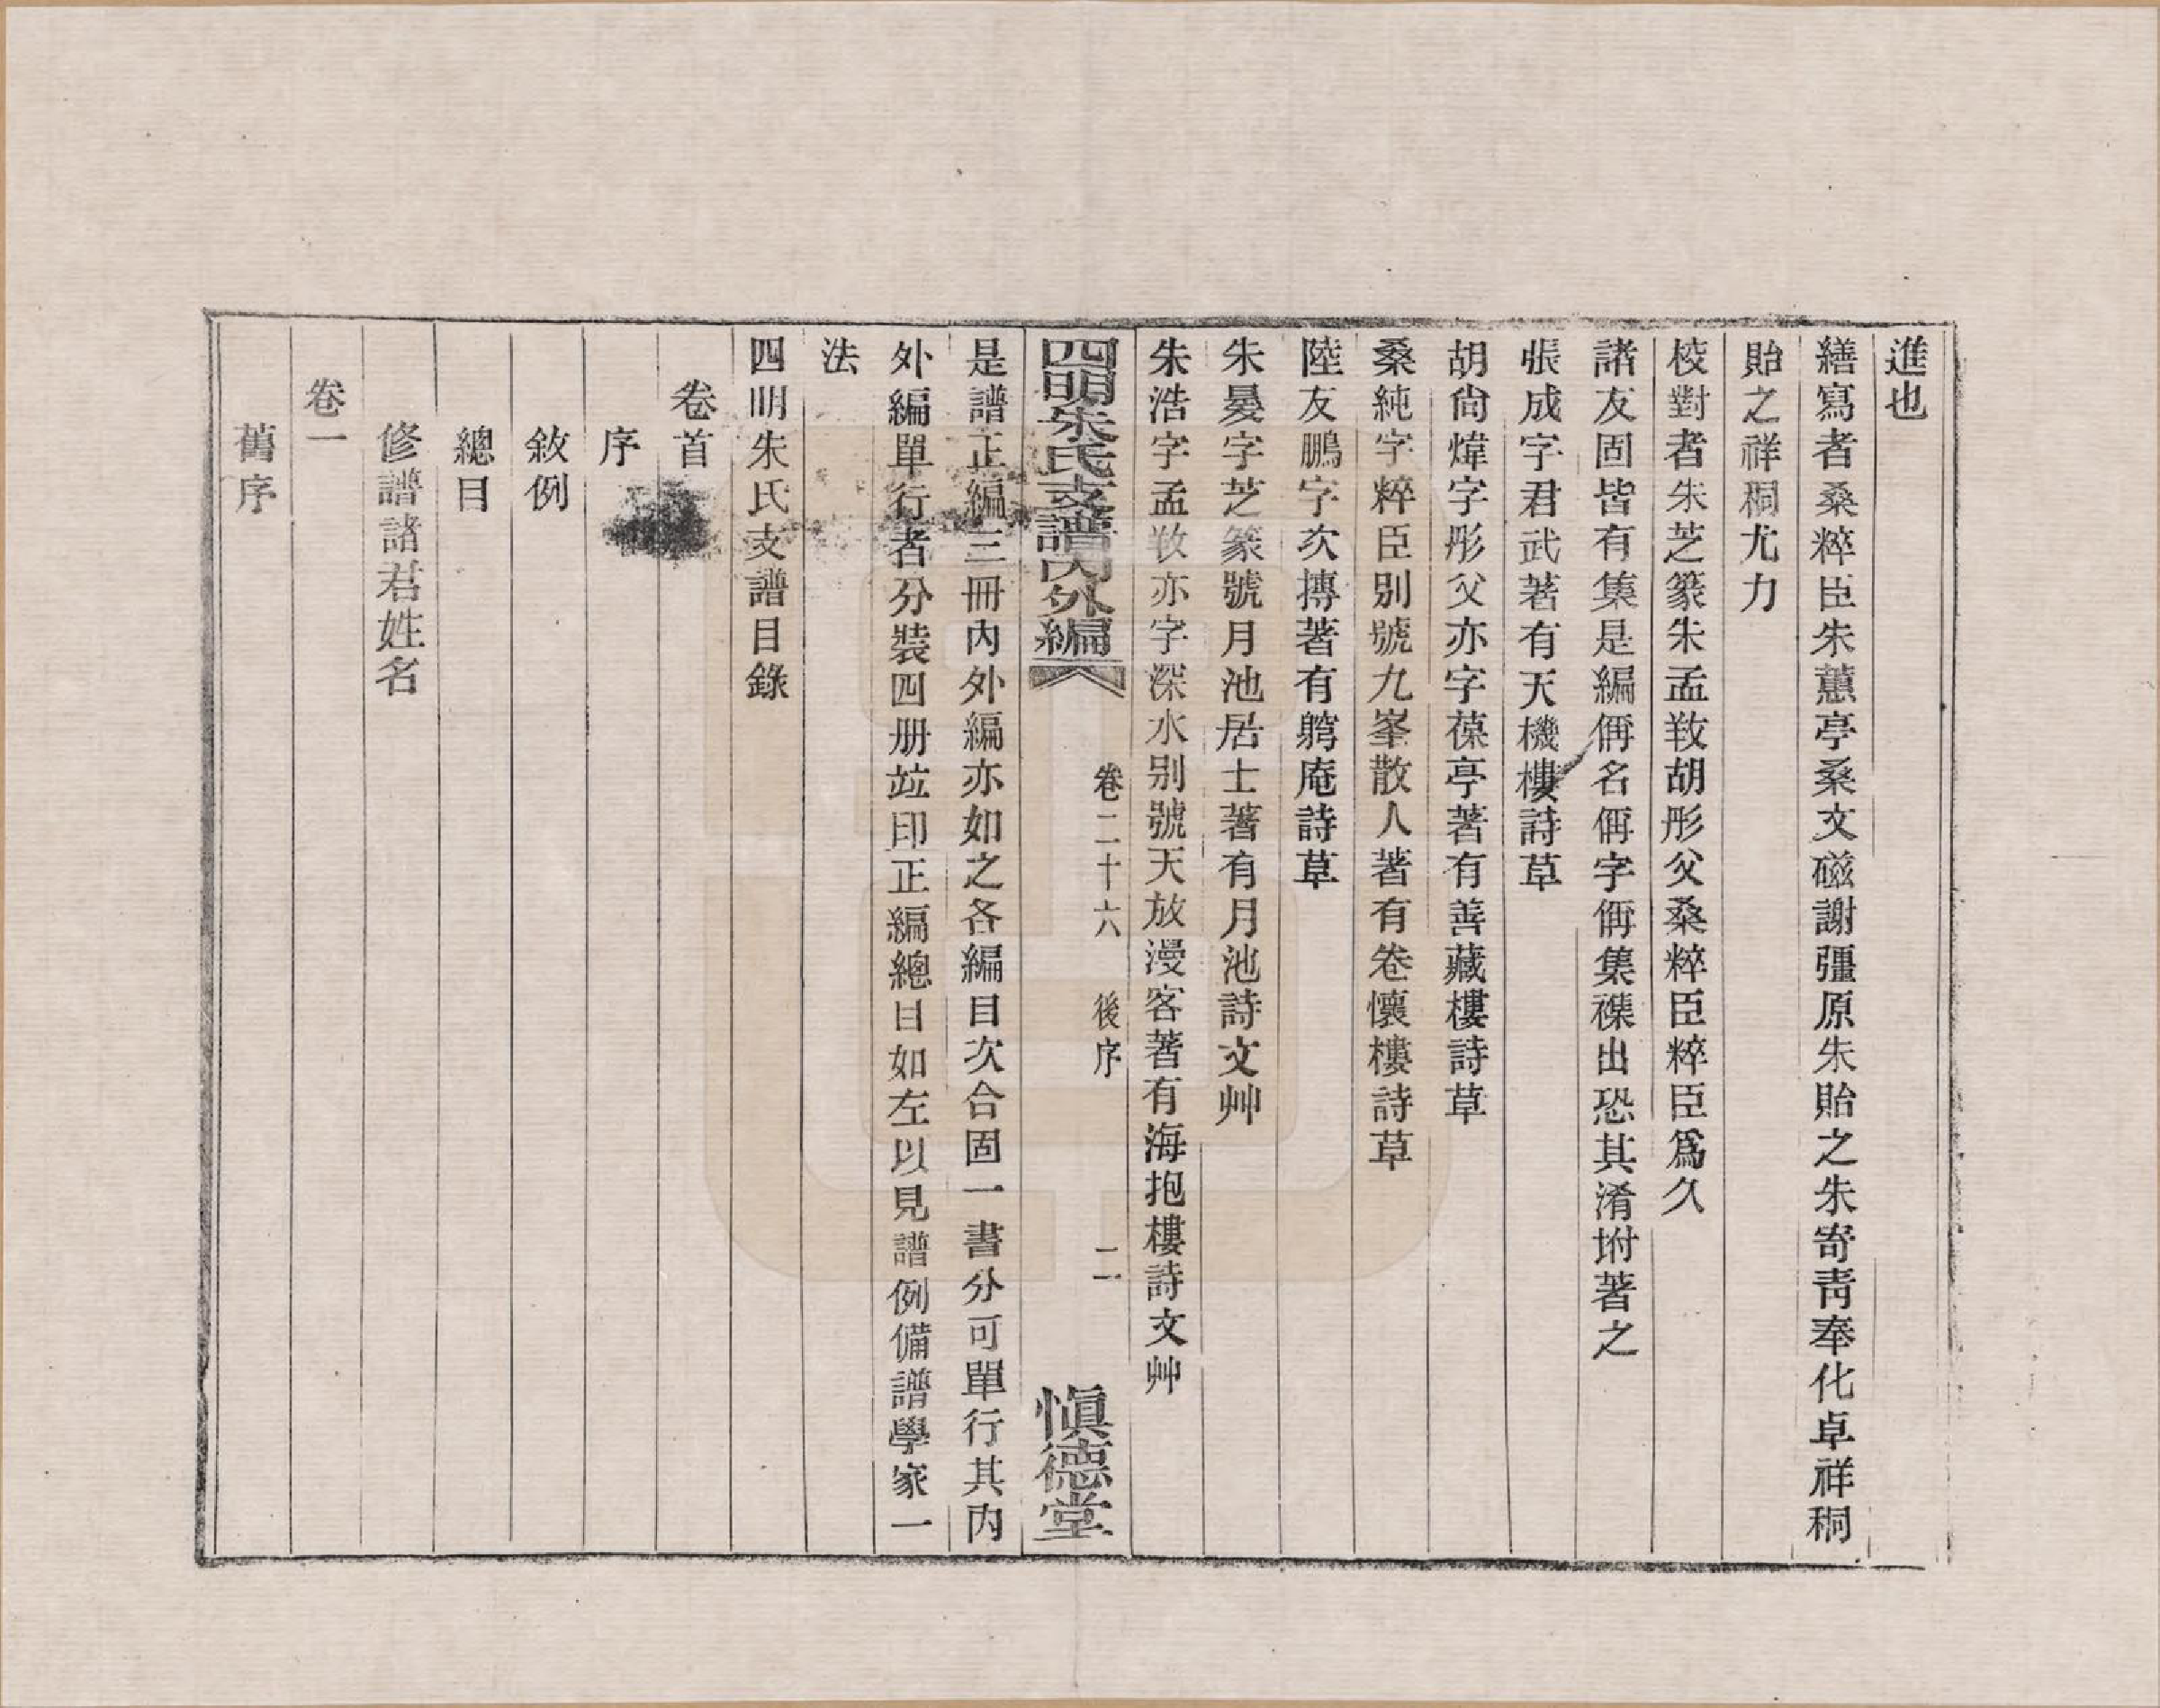 進也
繕寫者桑粹臣朱蕙亭桑文磁謝彊原朱貽之朱寄靑奉化卓祥秱
貽之祥秱尤力
校對者朱芝篆朱孟敎胡彤父桑粹臣粹臣爲久
諸友固皆有集是編偁名偁字偁集襍出恐其淆坿著之
張成字君武著有天機樓詩草
胡尙煒字彤父亦字葆亭著有善藏樓詩草
桑純字粹臣別號九峯散人著有卷懷樓詩草
陸友鵬字次摶著有鶺庵詩草
朱㬅字芝篆號月池居士著有月池詩文艸
朱浩字孟敎亦字深水別號天放漫客著有海抱樓詩文艸
四明朱氏支譜內外編
卷二十六
後序
二
愼德堂
是譜正編三冊內外編亦如之各編目次合固一書分可單行其內
外編單行者分裝四册竝印正編總目如左以見譜例備譜學家一
法
四明朱氏支譜目錄
卷首
序
敘例
總目
修譜諸君姓名
卷一
舊序